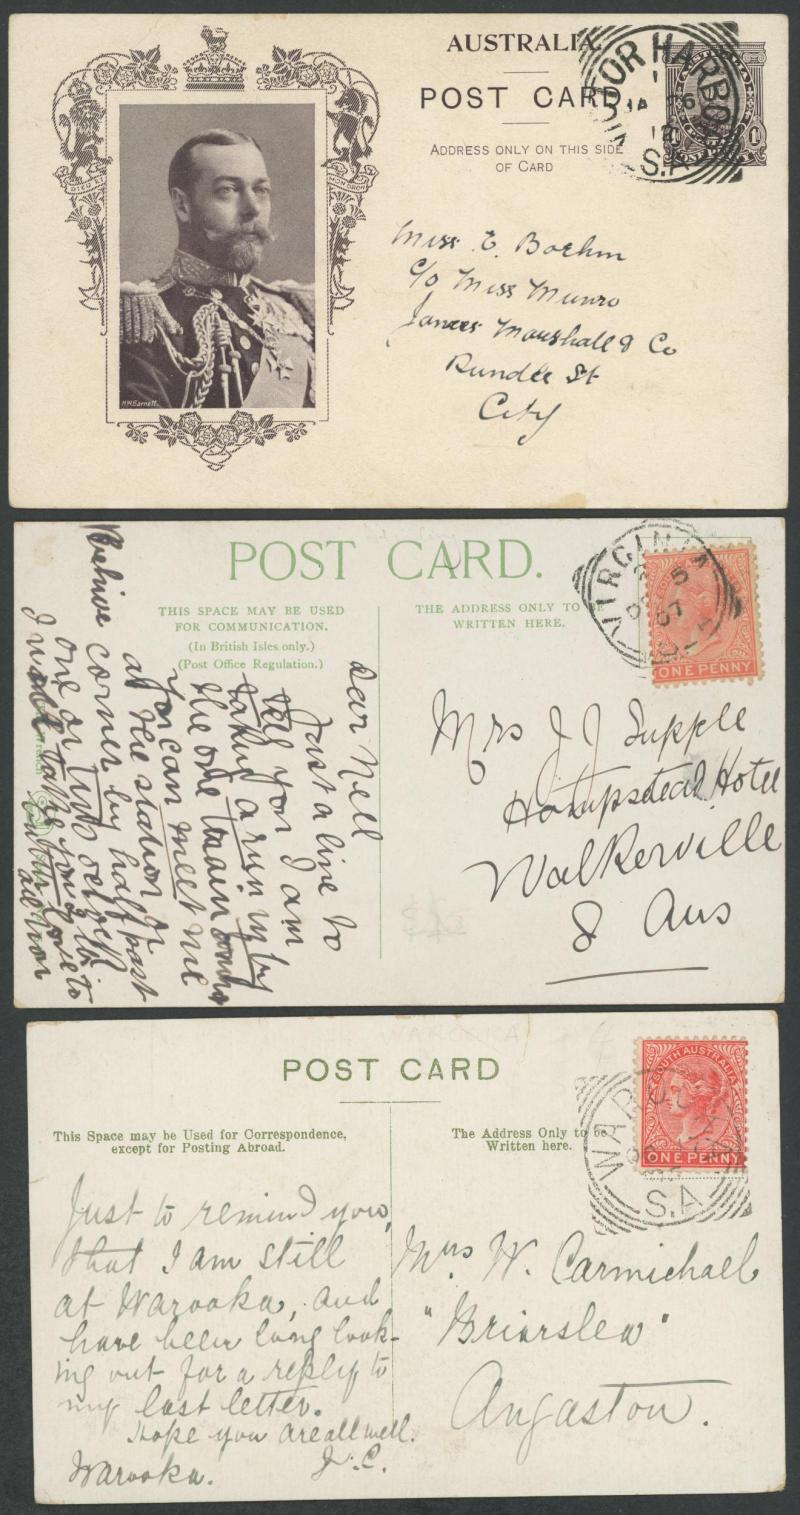 AUSTRALIA.
POST CARD
ADDRESS ONLY ON THIS SIDE
OF CARD
DIEU ET MON DROIT
H.W. Barnett.
VICTOR HARBOR
1
JA 16
12
S.A
Miss E. Boehm
C/o Miss Munro
James Marshall & Co
Rundle St
City
POST CARD.
THIS SPACE MAY BE USED
FOR COMMUNICATION.
(In British Isles only.)
(Post Office Regulation.)
THE ADDRESS ONLY TO BE
WRITTEN HERE.
VIRGINIA
5
07
ONE PENNY
Dear Nell
Just a line to
tell you I am
taking a run up by
the one train
you can meet me
at the station or
Behive corner by half past
one or two oclock
I would take you
love to
Mrs J J Supple
Hampstead Hotel
Walkerville
S Aus
POST CARD
This Space may be Used for Correspondence,
except for Posting Abroad.
The Address Only to be
Written here.
SOUTH AUSTRALIA
ONE PENNY
WAROOKA
S.A
Just to remind you,
that I am still
at Warooka, and
have been long look-
ing out for a reply to
my last letter.
Hope you are all well.
Warooka. J.C.
Mrs W. Carmichael
"Brierslea"
Angaston.